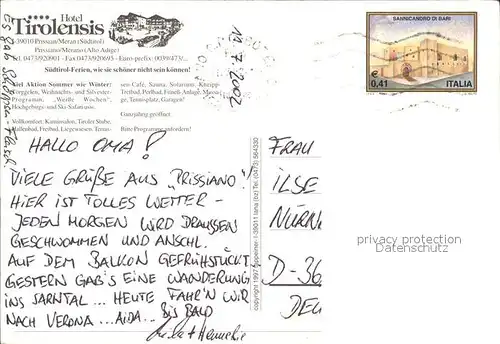 Hotel
★★★★ Tirolensis
I-39010 Prissian/Meran (Südtirol)
Prissiano/Merano (Alto Adige)
Tel. 0473/920901 - Fax 0473/920695 - Euro-prefix: 0039/473/...
Südtirol-Ferien, wie sie schöner nicht sein können!
Viel Aktion Sommer wie Winter:
Törggelen, Weihnachts- und Silvester-
Programm, "Weiße Wochen",
Hochgebirgs- und Ski-Safariausse.
Vollkomfort, Kaminsalon, Tiroler Stube,
Hallenbad, Freibad, Liegewiesen, Tennis-
sen-Café, Sauna, Solarium, Kneipp-
Tretbad, Perlbad, Fitneß-Anlage, Massa-
ge, Tennisplatz, Garagen!
Ganzjährig geöffnet.
Bitte Programme anfordern!
Es gab
19.7.2002
SANNICANDRO DI BARI
€ 0,41 ITALIA
HALLO OMA!
VIELE GRÜßE AUS "PRISSIANO"!
HIER IST TOLLES WETTER -
JEDEN MORGEN WIRD DRAUSSEN
GESCHWOMMEN UND ANSCHL.
AUF DEM BALKON GEFRÜHSTÜCKT.
GESTERN GAB'S EINE WANDERUNG
INS SARNTAL ... HEUTE FAHR'N WIR
NACH VERONA ... AIDA .. BIS BALD
copyright 1997 I-39011 lana (bz) Tel. (0473) 564330
FRAU
ILSE
NÜRN
D-36
DEU
privacy protection
VINTAGEPOSTCARDS.COM